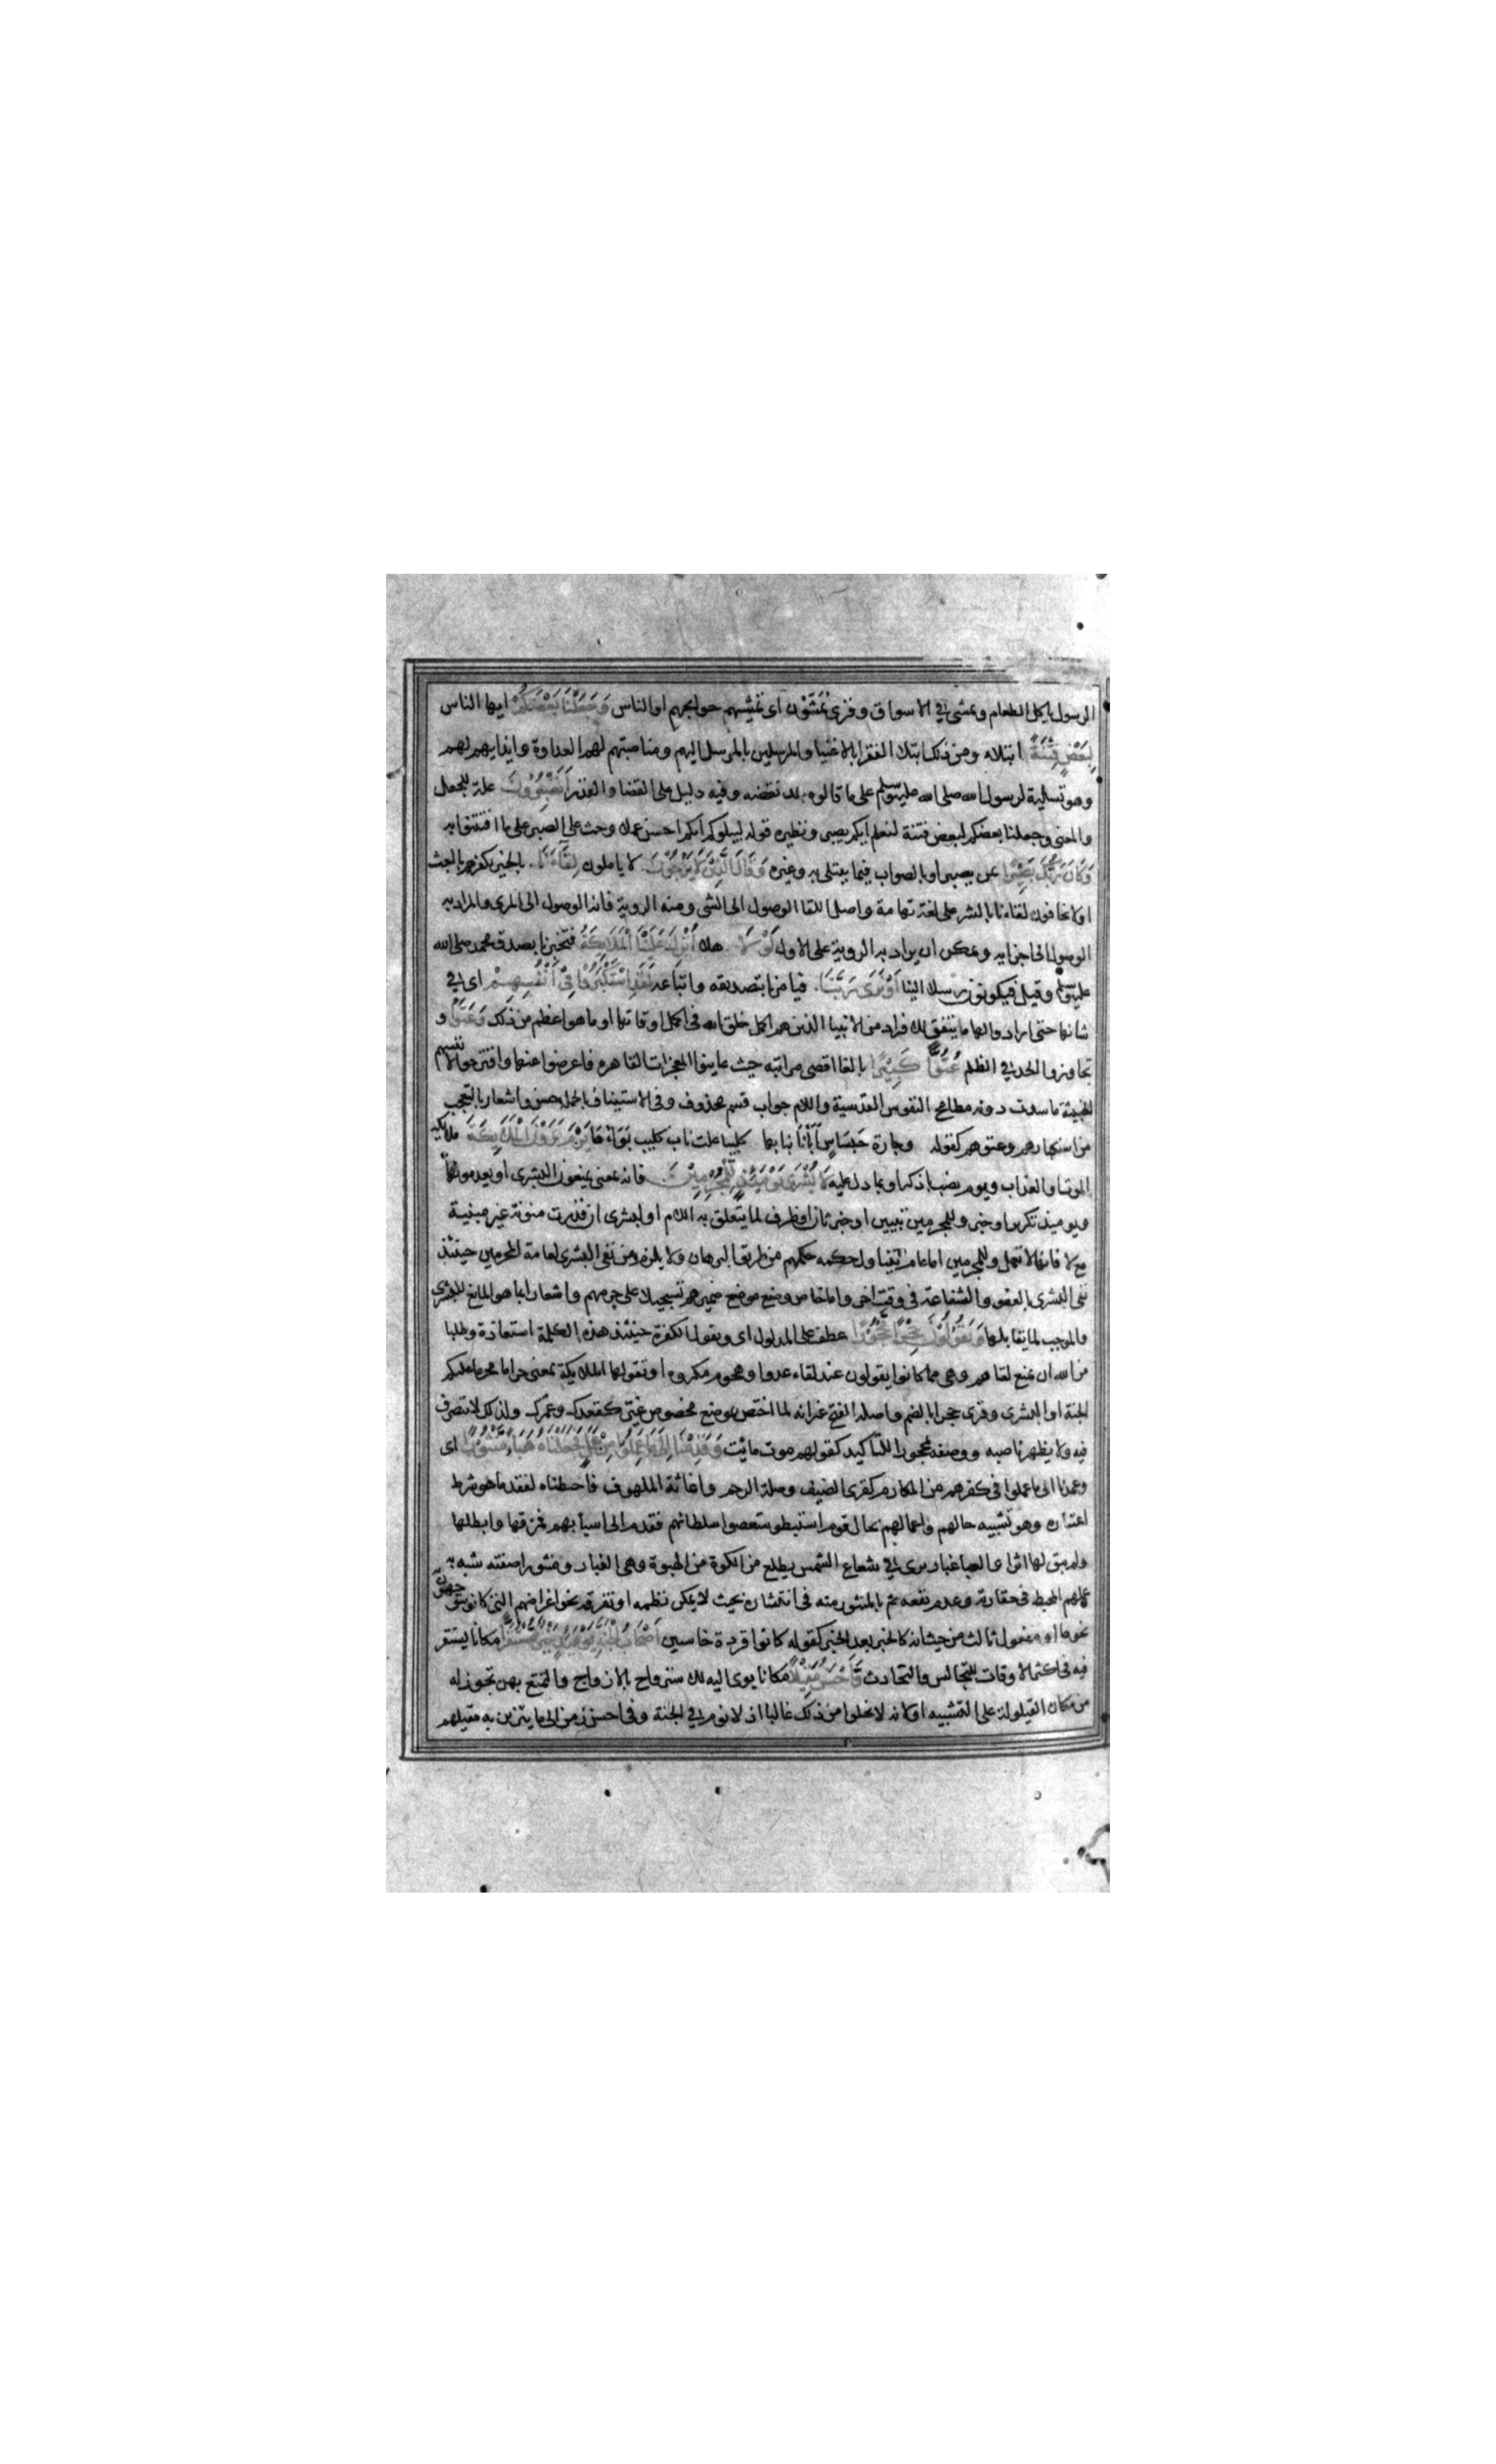 الرسول ياكل الطعام ويمشى في الاسواق وقرئ يُمَشَّوْن اى تمشيهم حوايجهم او الناس وَجَعَلْنَا بَعْضَكُمْ ايها الناس
لِبَعْضٍ فِتْنَةً ابتلاء ومن ذلك ابتلاء الفقرا بالاغنيا والمرسلين بالمرسل اليهم ومناصبتهم لهم العداوة وايذايهم لهم
وهو تسلية لرسول الله صلى الله عليه وسلم على ما قالوه بعد نقضه وفيه دليل على القضا والقدر اَتَصْبِرُونَ علة للجعل
والمعنى وجعلنا بعضكم لبعض فتنة لنعلم ايكم يصبر ونظيره قوله ليبلوكم ايكم احسن عملا وحث على الصبر على ما افتتنوا به
وَكَانَ رَبُّكَ بَصِيْرًا عن يصبر او بالصواب فيما يبتلى به وغيره وَقَالَ الَّذِيْنَ لَا يَرْجُوْنَ لا ياملون لِقَاءَنَا بالخير لكفرهم بالبعث
او لا يخافون لقاءنا بالشر على لغة تهامة واصل اللقا الوصول الى الشى ومنه الروية فانه الوصول الى المرئ والمراد به
الوصول الى جزايه ويمكن ان يراد به الروية على الاول لَوْ لَا هلا اُنْزِلَ عَلَيْنَا الْمَلَايِكَةُ فتخبرنا بصدق محمد صلى الله
عليه وسلم وقيل فيكونون رسلا الينا اَوْ نَرَى رَبَّنَا فيامرنا بتصديقه واتباعه لَقَدِ اسْتَكْبَرُوْا فِيْ اَنْفُسِهِمْ اى في
شانها حتى ارادوا لها ما يتفق لافراد من الانبيا الذين هم اكمل خلق الله فى اكمل اوقاتها او ما هو اعظم من ذلك وَعَتَوْا و
تجاوزوا الحد في الظلم عُتُوًّا كَبِيْرًا بالغا اقصى مراتبه حيث عاينوا المعجزات القاهره فاعرضوا عنها واقترحوا لانفسهم
الخبيثة ما سدت دونه مطامح النفوس القدسية واللام جواب قسم محذوف وفى الاستيناف بالجملة حسن واشعار بالتعجب
من استكبارهم وعتوهم كقوله وجارة جساس ابأنا بنابها كليبا علت ناب كليب بواءها يَوْمَ يَرَوْنَ الْمَلَايِكَةَ ملايكة
الموت او العذاب ويوم نصب باذكر او بما دل عليه لَا بُشْرَى يَوْمَئِذٍ لِلْمُجْرِمِيْنَ فانه بمعنى يمنعون البشرى او يعدمونها
ويوميذ تكرير او خبر وللمجرمين تبيين او خبر ثان او ظرف لما يتعلق به اللام او لبشرى ان قدرت منونة غير مبنية
مع لا فانها لا تعمل وللمجرمين اما عام يتناول حكمه حكمهم من طريق البرهان ولا يلزم من نفى البشرى لعامة المجرمين حينئذ
نفى البشرى بالعفو والشفاعة فى وقت اخر واما خاص وضع موضع ضميرهم تسجيلا على جرمهم واشعارا بما هو المانع للبشرى
والموجب لما يقابلها وَيَقُوْلُوْنَ حِجْرًا مَحْجُوْرًا عطف على المدلول اى ويقول الكفرة حينئذ هذه الكلمة استعاذة وطلبا
من الله ان يمنع لقاهم وهى مما كانوا يقولون عند لقاء عدو او هجوم مكروه او تقولها الملايكة بمعنى حراما محرما عليكم
الجنة او البشرى وقرئ حجرا بالضم واصله الفتح غير انه لما اختص بموضع مخصوص غيّر كقعدك وعمرك ولذلك لا تتصرف
فيه ولا يظهر ناصبه ووصفه بمحجورا للتأكيد كقولهم موت مائت وَقَدِمْنَا اِلَى مَا عَمِلُوْا مِنْ عَمَلٍ فَجَعَلْنَاهُ هَبَاءً مَنْثُوْرًا اى
وعمدنا الى ما عملوا فى كفرهم من المكارم كقرى الضيف وصلة الرحم واغاثة الملهوف فاحبطناه لفقد ما هو شرط
اعتباره وهو تشبيه حالهم واعمالهم بحال قوم استعصوا سلطانهم فقدم الى اسبابهم فمزقها وابطلها
ولم يبق لها اثرا والهبا غبار يرى في شعاع الشمس يطلع من الكوة من الهبوة وهى الغبار ومنثورا صفته شبه به
عملهم المحبط فى حقارته وعدم نفعه ثم بالمنثور منه فى انتشاره بحيث لا يمكن نظمه او تفرقه نحو اغراضهم التى كانوا يتوجهون
نحوها او مفعول ثالث من حيث انه كالخبر بعد الخبر كقوله كونوا قردة خاسين اَصْحَابُ الْجَنَّةِ يَوْمَئِذٍ خَيْرٌ مُسْتَقَرًّا مكانا يستقر
فيه فى اكثر الاوقات للتجالس والتحادث وَاَحْسَنُ مَقِيْلًا مكانا يوى اليه للاسترواح بالازواج والتمتع بهن تجوز له
من مكان القيلولة على التشبيه او لانه لا يخلوا من ذلك غالبا اذ لا نوم في الجنة وفى احسن رمز الى ما يتزين به مقيلهم